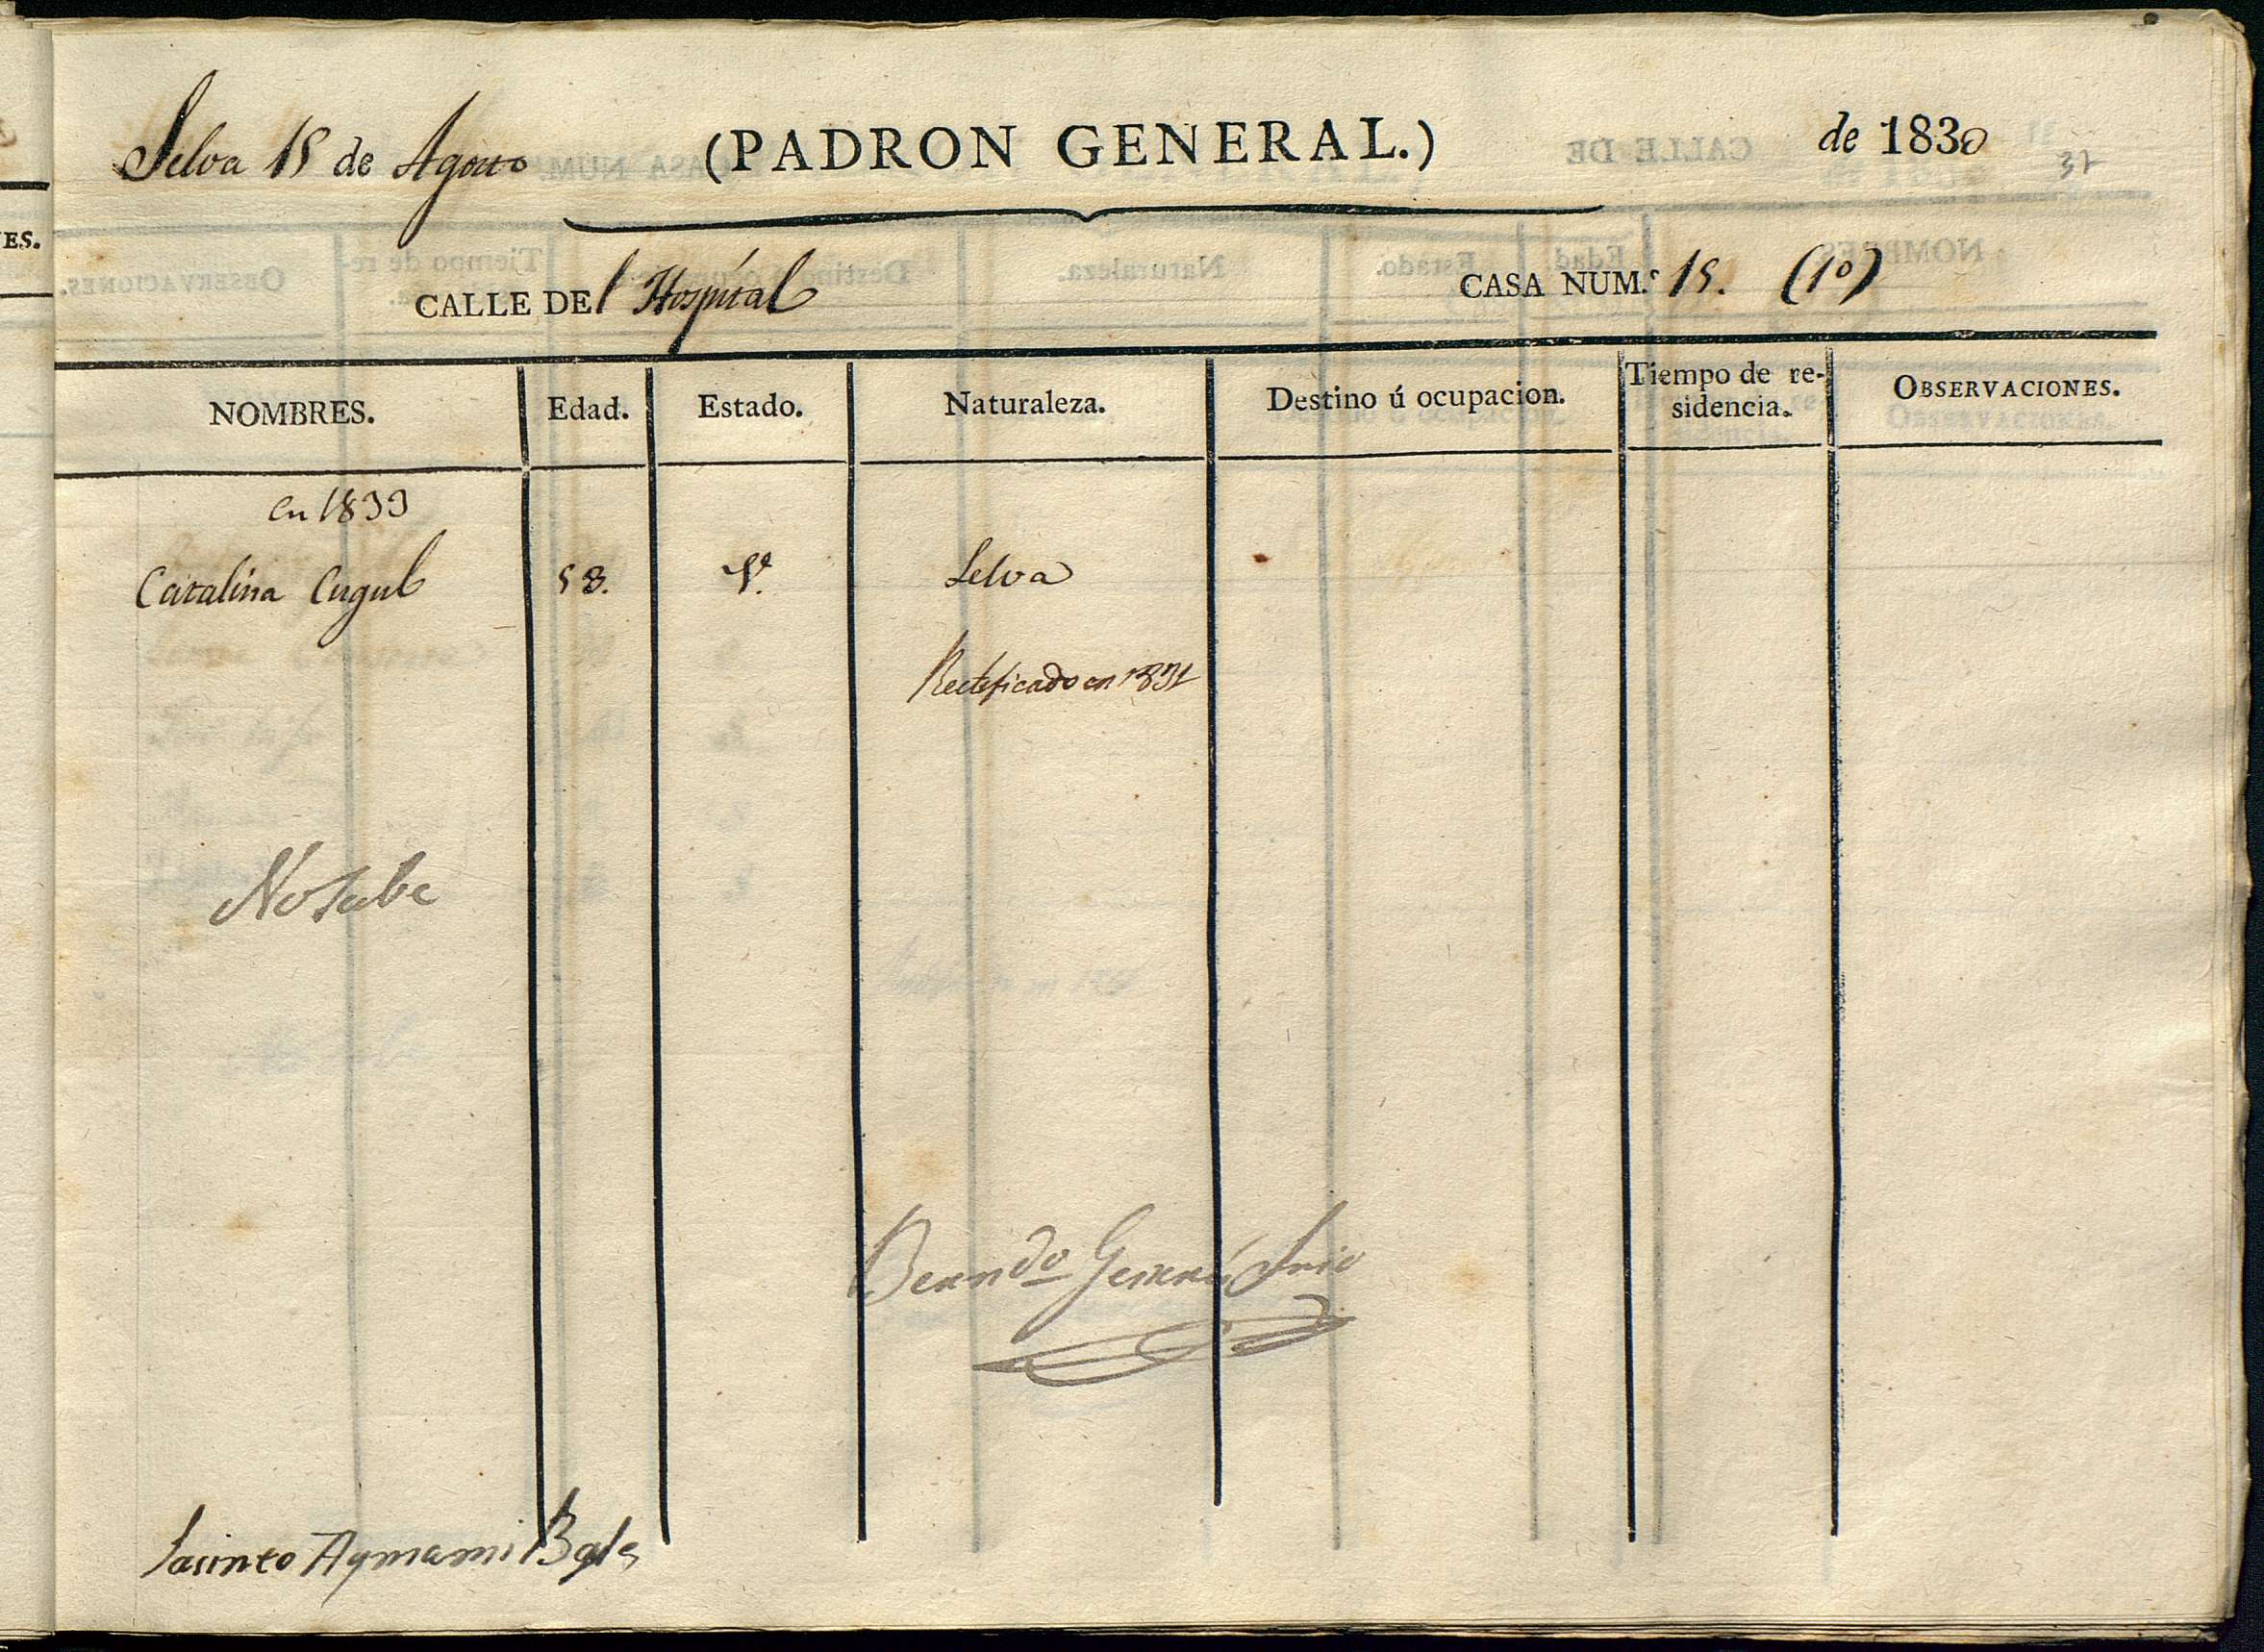 ES.
Selva 15 de Agosto (PADRON GENERAL.) de 1830
37
CALLE DEl Hospital CASA NUM.º 15. (1º)
NOMBRES. Edad. Estado. Naturaleza. Destino ú ocupacion. Tiempo de re-
sidencia. OBSERVACIONES.
en 1833
Catalina Cugul 58. Selva
Rectificado en 1831
No sabe
Berndo
Jacinto Aymami Bgle